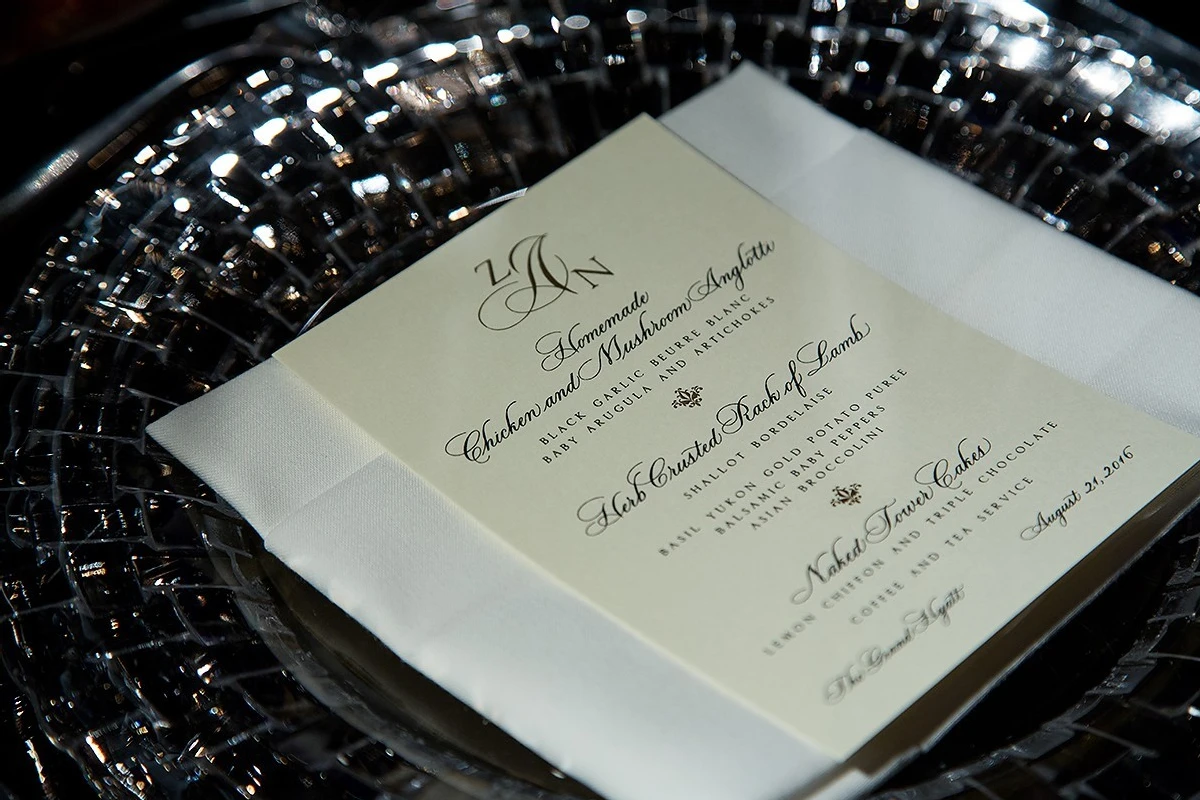 Z A N
Homemade
Chicken and Mushroom Anglotti
BLACK GARLIC BEURRE BLANC
BABY ARUGULA AND ARTICHOKES
Herb Crusted Rack of Lamb
SHALLOT BORDELAISE
BASIL YUKON GOLD POTATO PUREE
BALSAMIC BABY PEPPERS
ASIAN BROCCOLINI
Naked Tower Cakes
LEMON CHIFFON AND TRIPLE CHOCOLATE
COFFEE AND TEA SERVICE
The Grand Hyatt
August 21, 2016